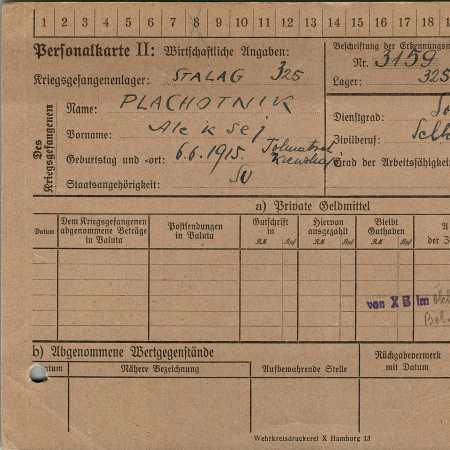 1 2 3 4 5 6 7 8 9 10 11 12 13 14 15 16 17 18
Personalkarte II: Wirtschaftliche Angaben:
Beschriftung der Erkennungsm
Nr. 3159
Kriegsgefangenenlager: STALAG 325
Lager: 325
Des Kriegsgefangenen
Name: PLACHOTNIK
Vorname: Aleksej
Dienstgrad: So
Zivilberuf:
Geburtstag und -ort: 6.6.1915.
Grad der Arbeitsfähigkeit
Staatsangehörigkeit: SU
a) Private Geldmittel
Datum
Dem Kriegsgefangenen abgenommene Beträge in Valuta
Postsendungen in Valuta
Gutschrift in
RM Rpf
Hiervon ausgezahlt
RM Rpf
Bleibt Guthaben
RM Rpf
A
der Z
von X B im
Bel
b) Abgenommene Wertgegenstände
Rückgabevermerk mit Datum
atum
Nähere Bezeichnung
Aufbewahrende Stelle
Wehrkreisdruckerei X Hamburg 13